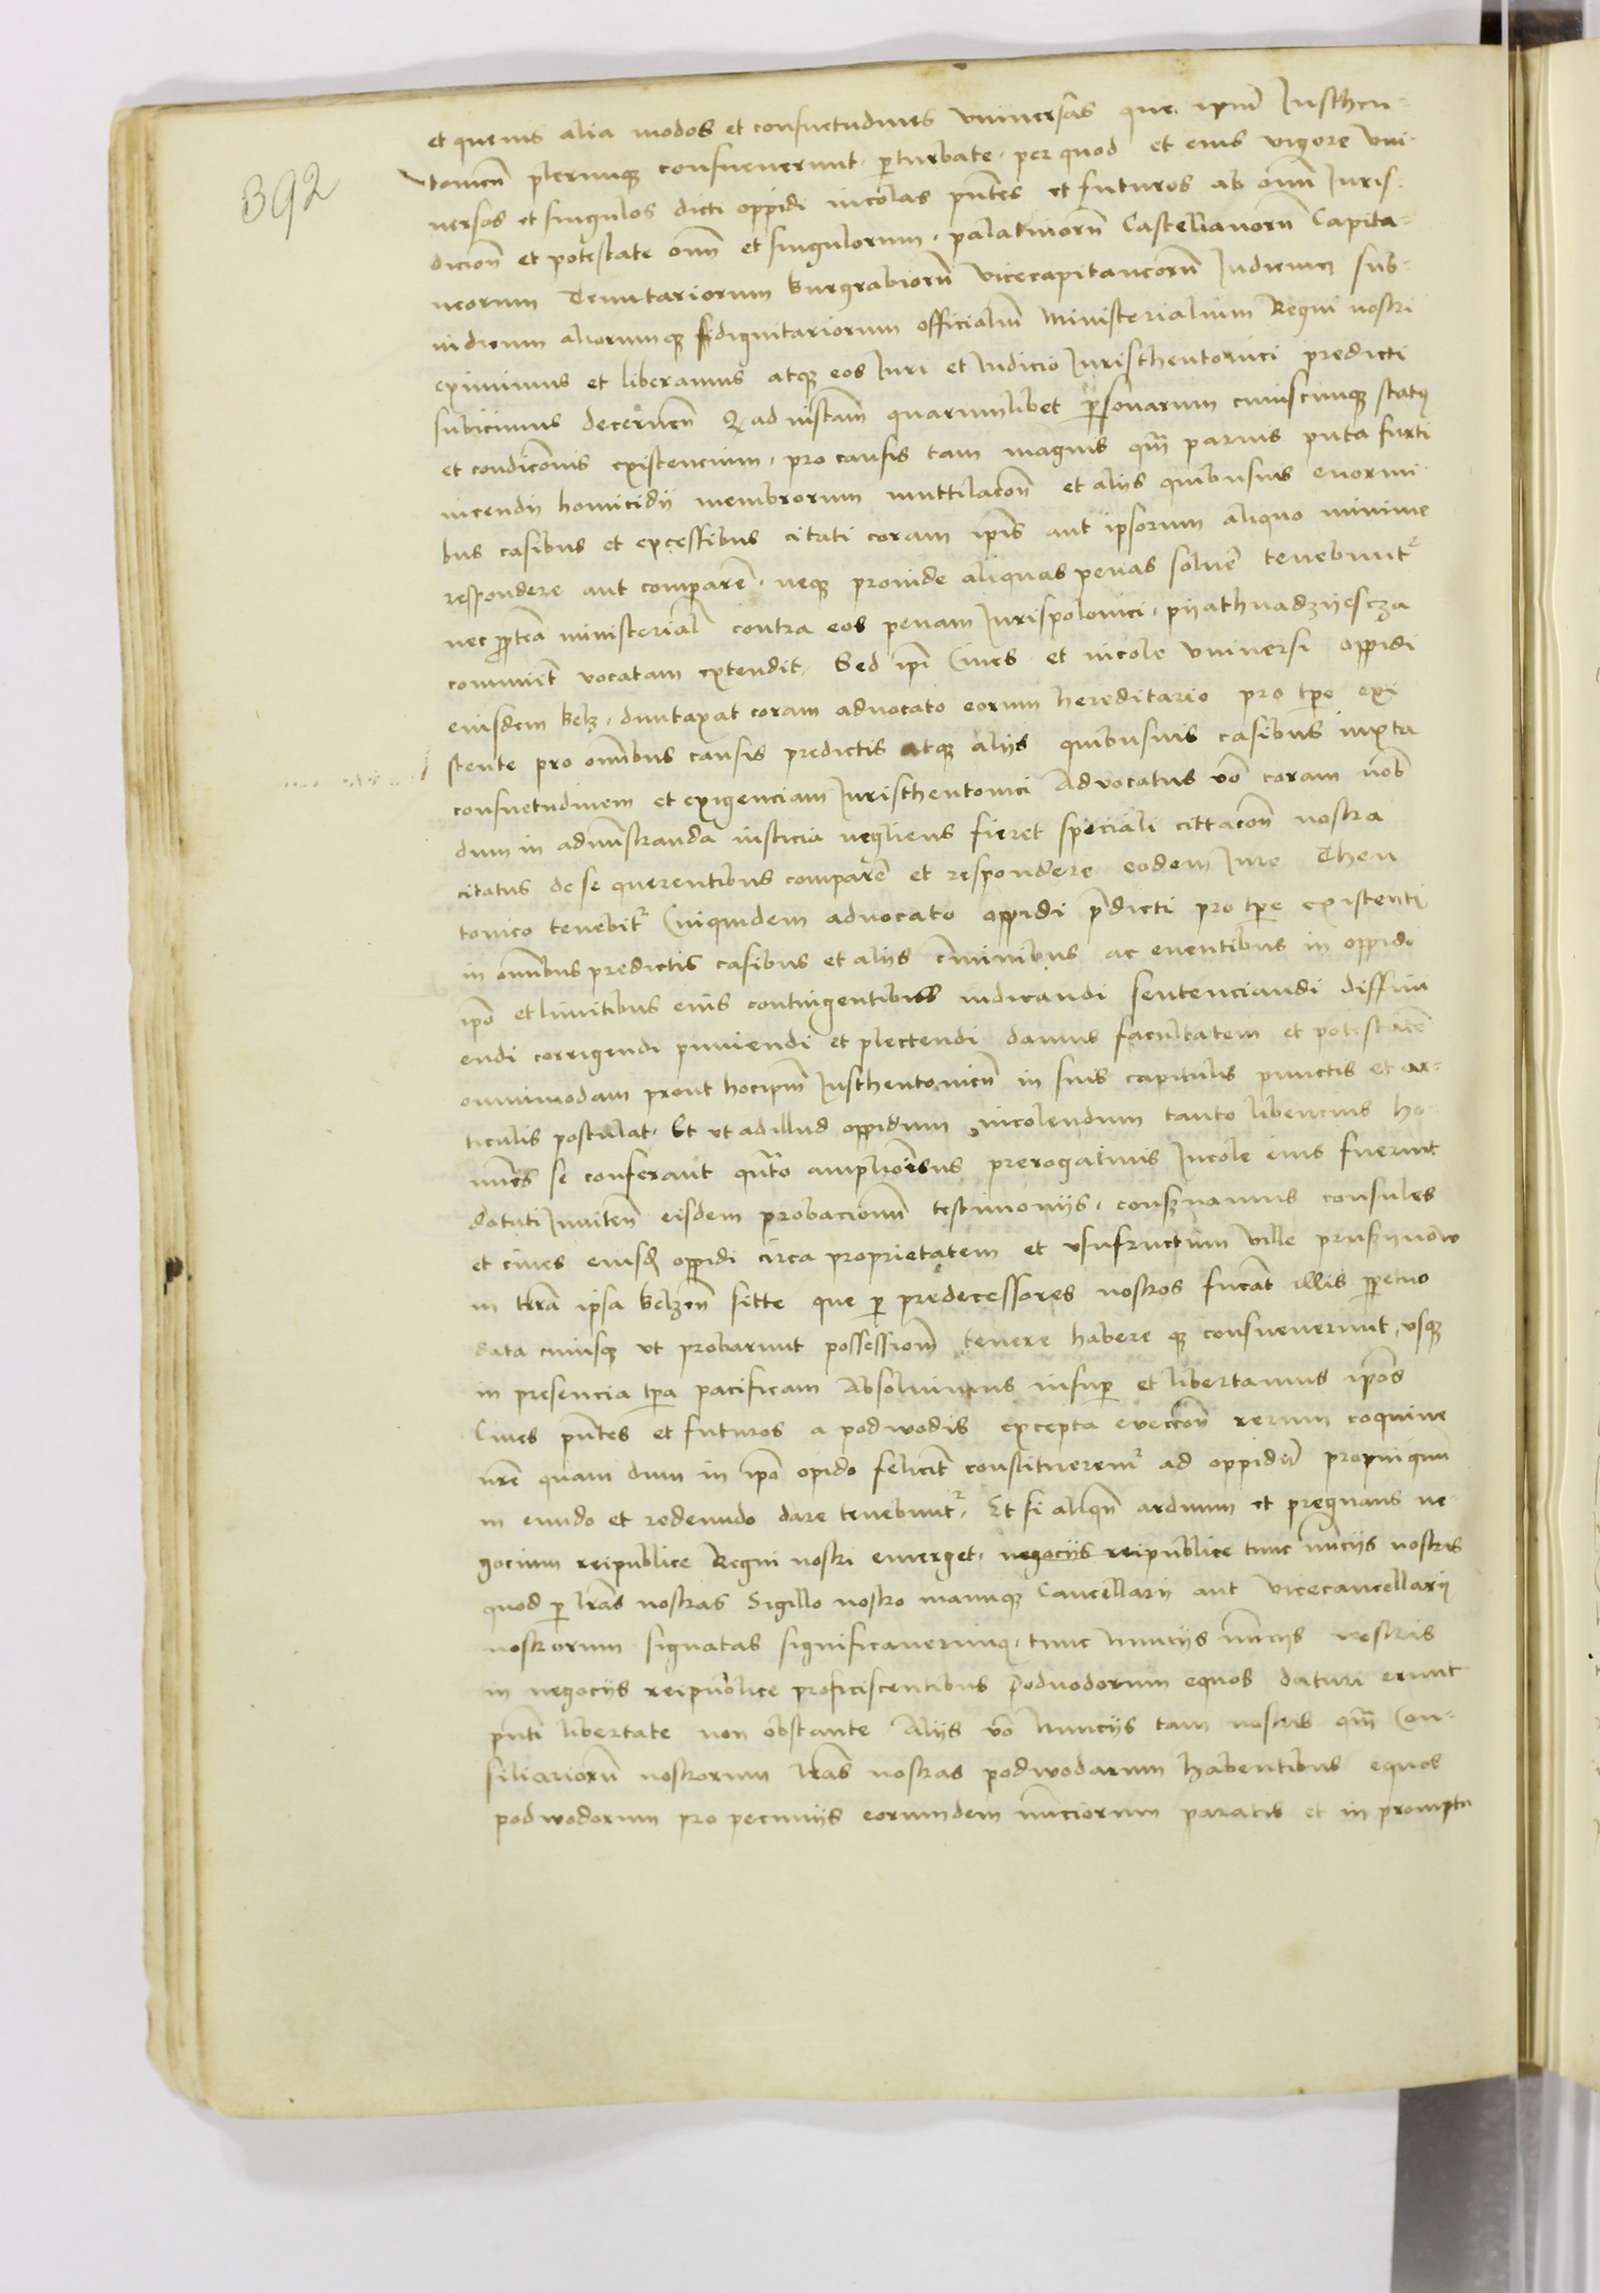 392
et quevis alia modos et consuetudines universas que ipm̄ Justheu-
tonicū plerumq̨ consueverunt perturbate, per quod et eius vigore uni-
versos et singulos dicti oppidi incolas pn̄tes et futuros ab omī Juris-
dicion̄ et potestate omn̄ et singulorum, palatinorū Castellanorū Capita-
neorum Tenutariorum burgrabiorū vicecapitaneorū Judicum sub-
iudicum aliorumq̨ dignitariorum officialiū Ministerialium Regni nostri
eximimus et liberamus atq̨ eos Juri et Judicio Juristheutonici predicti
subicimus decernen̄ Q ad instam̄ quarumlibet personarum cuiuscumq̨ statꝰ
et condicōnis existencium, pro causis tam magnis qm̄ parvis puta furti
incendij homicidij membrorum muttilacōn et alijs quibusvis enormi-
bus casibus et excessibus citati coram ipīs aut ipsorum aliquo minime
respondere aut comparē, neq̨ proinde aliquas penas solvē tenebunt~
nec p̄terea ministerial contra eos penam Jurispolonici, pyathnadzyescza
comunit̄ vocatam extendit, Sed ipī Cives et incole universi oppidi
eiusdem belz, duntaxat coram advocato eorum hereditario pro tp̄e exi
stente pro omībus causis predictis atq̨ alijs quibusvis casibus iuxta
consuetudinem et exigenciam Juristheutonici Advocatus vō coram nob̄
dum in admīstranda iusticia negliens fieret speciali cittacōn nostra
citatus de se querentibus comparē et respondere eodem Jure Theu
tonico tenebit~ Cuiquidem advocato oppidi p̄dicti pro tp̄e existenti
in omībus predictis casibus et alijs c̄minibus ac eventibus in oppido
ipō et limitibus eius contingentibus iudicandi sentenciandi diffini
endi corrigendi puniendi et plectendi damus facultatem et potestatē
omnimodam prout hocipm̄ Justheutonicū in suis capitulis punctis et ar-
ticulis postulat. Et ut ad illud oppidum incolendum tanto libencius ho-
mīes se conferant qn̄to amplioribus prerogativis Incole eius fuerint
dotati Inniten̄ eisdem probacionū testimonijs, conservamus consules
et cives eiusd̄ oppidi circa proprietatem et usufructum ville pruszynow
in terra ipsa belzen̄ sitte que p̄ predecessores nostros fuerat illis perpetuo
data cuiusq̨ ut probarunt possessionē tenere habere q̨ consueverunt, usq̨
in presencia tp̄a pacificam Absolvimus insuper et libertamus ipōs
Cives pn̄tes et futuros a podwodis excepta eveccōn rerum coquine
nrē quam dum in ipō opido felicit̄ constituerem~ ad oppidū propinquū
in eundo et redeundo dare tenebunt~, Et si aliqn̄ arduum et pregnans ne-
gocium reipublice Regni nostri emerget, negocijs reipublice tunc nunciis nostris
quod p̄ lr̄as nostras Sigillo nostro manuq̨ Cancellarij aut vicecancellarij
nostrorum signatas significaverimꝰ, tunc Nuncijs nūcijs nostris
in negocijs reipublice proficiscentibus Podvodorum equos daturi erunt
pn̄ti libertate non obstante Alijs vō Nuncijs tam nostris qm̄ Con-
siliariorū nostrorum lr̄as nostras podwodarum habentibus equos
podwodorum pro pecunijs eorumdem nūciorum paratis et in promptu